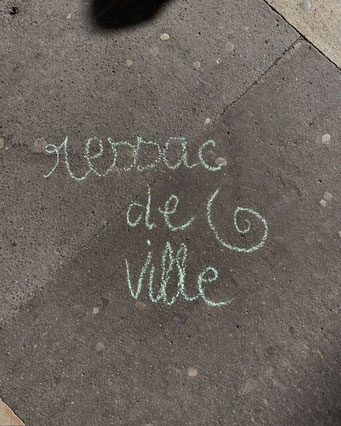 ressac
de
ville